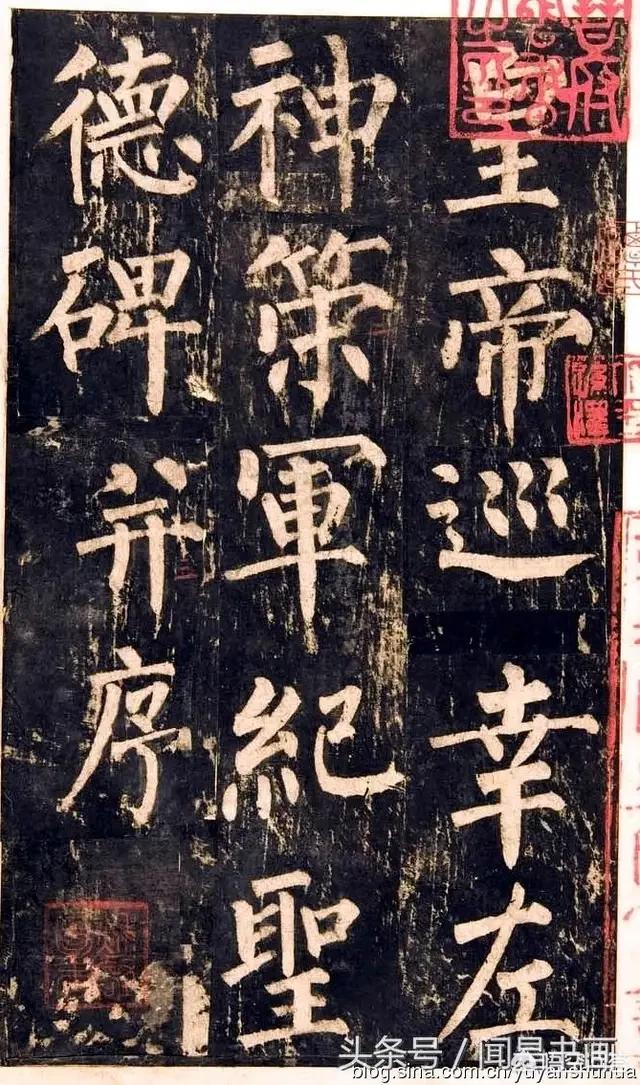 皇帝巡幸左
神策軍紀聖
德碑并序
头条号/闻易书画
blog.sina.com.cn/yuyanshuhua